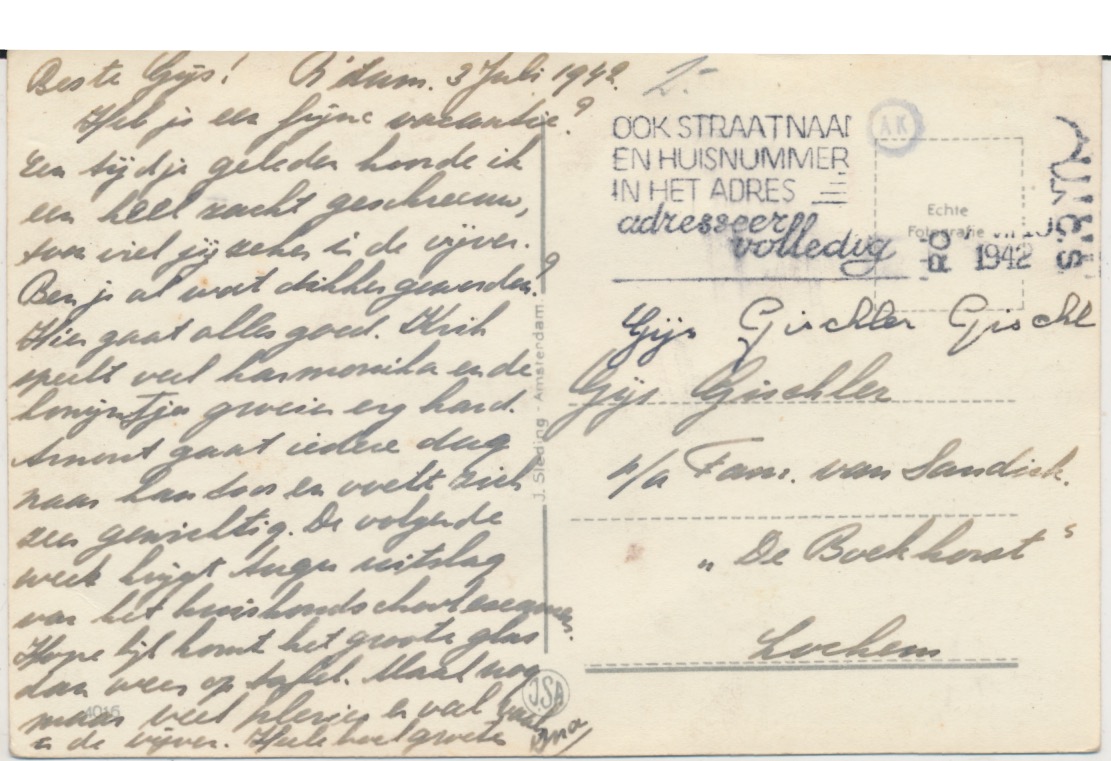 Beste Gijs! R'dam. 3 Juli 1942.
Heb je een fijne vacantie?
Een tijdje geleden hoorde ik
een heel zacht geschreeuw,
toen viel jij zeker in de vijver.
Ben je al wat dikker geworden?
Hier gaat alles goed. Dick
speelt veel harmonika en de
konijntjes groeien erg hard.
gaat iedere dag
naar kantoor en voelt zich
zeer gewichtig. De volgende
week krijgt uitslag
van het huishoudschoolexamen.
Hopelijk komt het groote glas
dan weer op tafel. Maak nog
maar veel plezier en val
in de vijver. Heele hartgroete
2.-
OOK STRAATNAAM
EN HUISNUMMER
IN HET ADRES
adresseer
volledig
AK
Echte
Fotografie
RO
1942
Gijs Gischler Gischl
Gijs Gischler
p/a Fam. van Sandick.
„De Boekhorst"
Lochem
J. Sleding - Amsterdam
J.S.A
4016